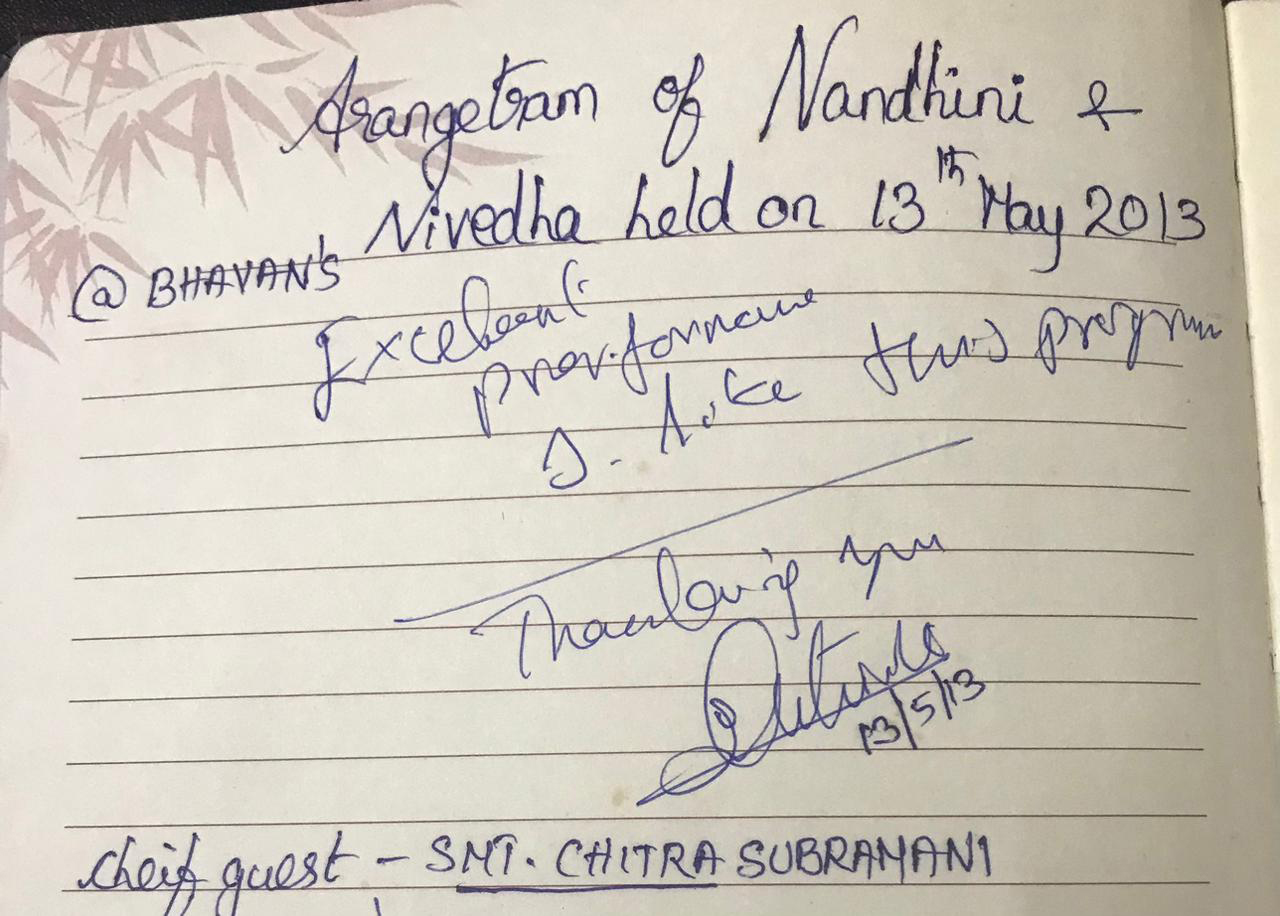 Arangetram of Nandhini &
Nivedha held on 13th May 2013
@ BHAVAN'S
Excellent
I like this program
Thanking you
13/5/13
Cheif guest - SMT. CHITRA SUBRAMANI